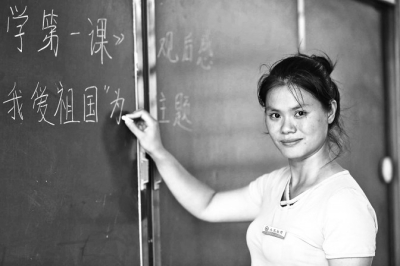 学第一课》 观后感
我爱祖国"为 主题